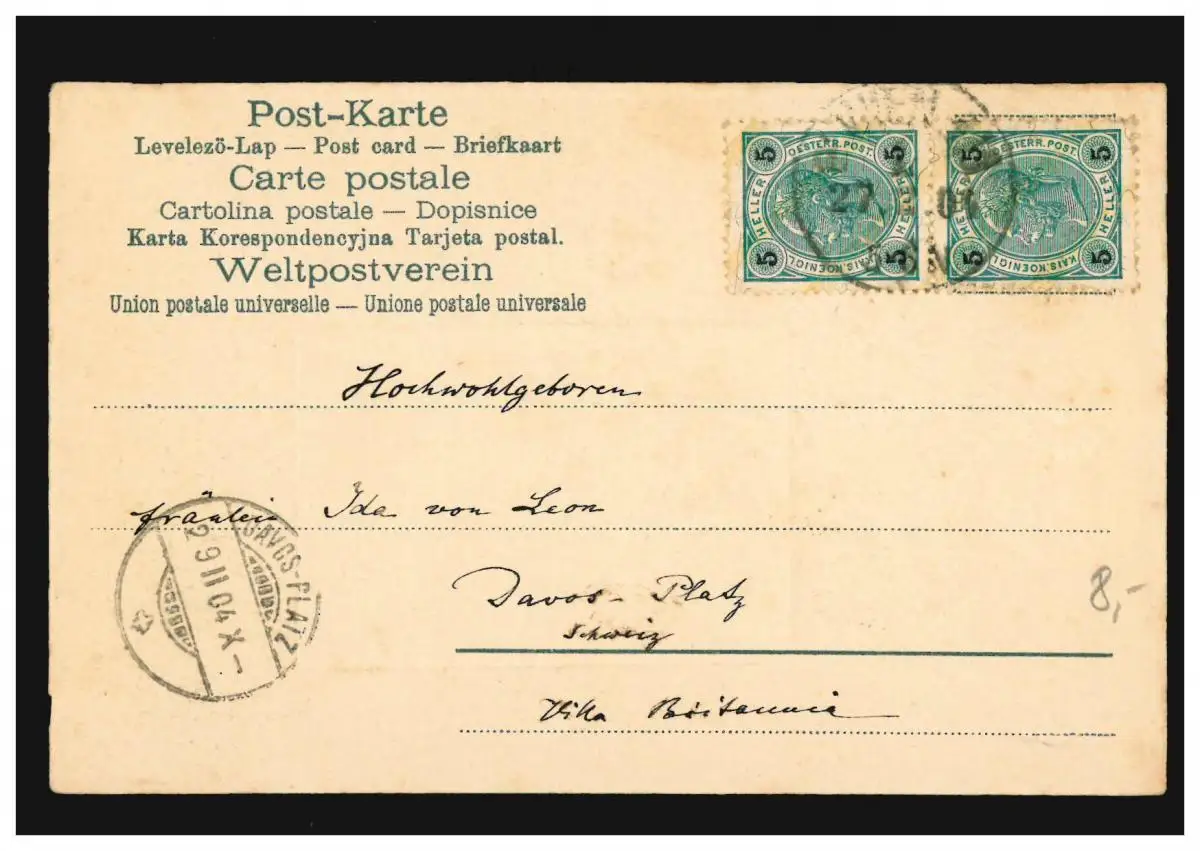 Post-Karte
Levelezö-Lap — Post card — Briefkaart
Carte postale
Cartolina postale — Dopisnice
Karta Korespondencyjna Tarjeta postal.
Weltpostverein
Union postale universelle — Unione postale universale
5 OESTERR. POST. 5
HELLER HELLER
5 KAIS. KOENIGL. 5
5 5
HELLER
5 KAIS. KOENIGL. 5
27
Hochwohlgeboren
fräulein Ida von Leon
Davos-Platz
Schweiz
Villa Britannia
DAVOS-PLATZ
29 II 04 X -
8,-